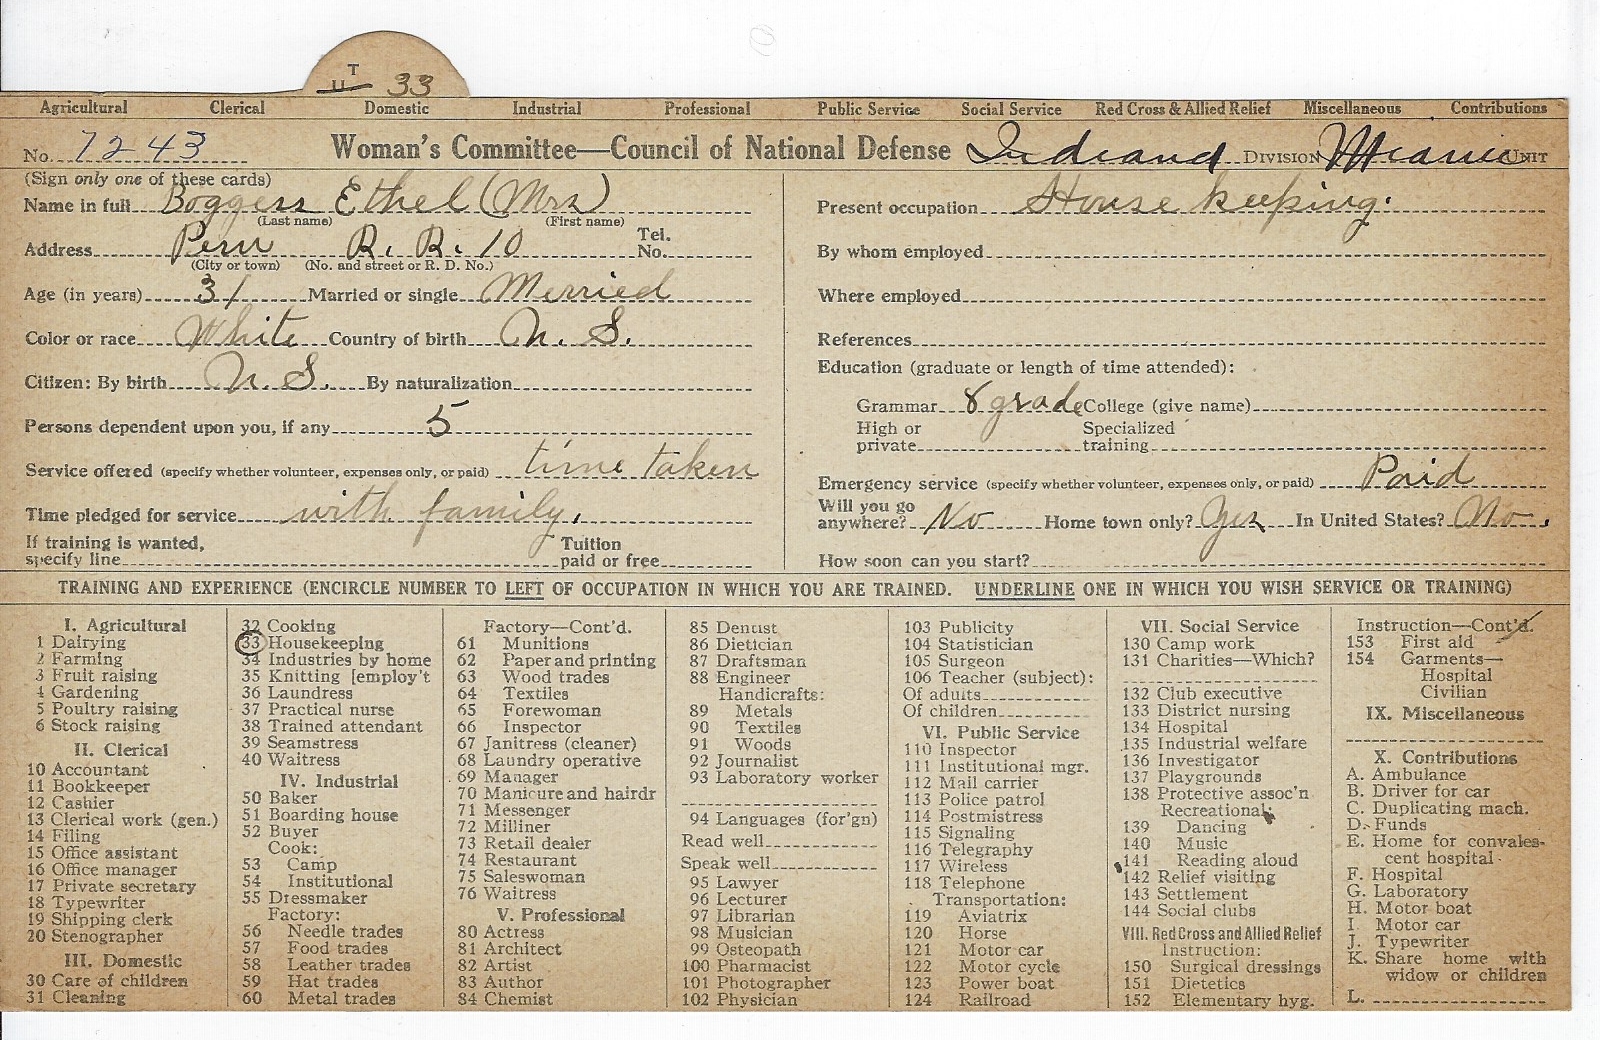 T
U 33
Agricultural Clerical Domestic Industrial Professional Public Service Social Service Red Cross & Allied Relief Miscellaneous Contributions
No. 7243 Woman's Committee—Council of National Defense Indiana DIVISION Miami UNIT
(Sign only one of these cards)
Name in full Boggess Ethel (Mrs)
(Last name) (First name)
Address Peru R. R. 10 Tel. No.
(City or town) (No. and street or R. D. No.)
Age (in years) 31 Married or single Merried
Color or race White Country of birth U. S.
Citizen: By birth U. S. By naturalization
Persons dependent upon you, if any 5
Service offered (specify whether volunteer, expenses only, or paid) time taken
Time pledged for service with family.
If training is wanted, specify line Tuition paid or free
Present occupation House keeping.
By whom employed
Where employed
References
Education (graduate or length of time attended):
Grammar 8 grade College (give name)
High or private Specialized training
Emergency service (specify whether volunteer, expenses only, or paid) Paid
Will you go anywhere? No Home town only? Yes In United States? No.
How soon can you start?
TRAINING AND EXPERIENCE (ENCIRCLE NUMBER TO LEFT OF OCCUPATION IN WHICH YOU ARE TRAINED. UNDERLINE ONE IN WHICH YOU WISH SERVICE OR TRAINING)
I. Agricultural
1 Dairying
2 Farming
3 Fruit raising
4 Gardening
5 Poultry raising
6 Stock raising
II. Clerical
10 Accountant
11 Bookkeeper
12 Cashier
13 Clerical work (gen.)
14 Filing
15 Office assistant
16 Office manager
17 Private secretary
18 Typewriter
19 Shipping clerk
20 Stenographer
III. Domestic
30 Care of children
31 Cleaning
32 Cooking
33 Housekeeping
34 Industries by home
35 Knitting [employ't
36 Laundress
37 Practical nurse
38 Trained attendant
39 Seamstress
40 Waitress
IV. Industrial
50 Baker
51 Boarding house
52 Buyer
Cook:
53 Camp
54 Institutional
55 Dressmaker
Factory:
56 Needle trades
57 Food trades
58 Leather trades
59 Hat trades
60 Metal trades
Factory—Cont'd.
61 Munitions
62 Paper and printing
63 Wood trades
64 Textiles
65 Forewoman
66 Inspector
67 Janitress (cleaner)
68 Laundry operative
69 Manager
70 Manicure and hairdr
71 Messenger
72 Milliner
73 Retail dealer
74 Restaurant
75 Saleswoman
76 Waitress
V. Professional
80 Actress
81 Architect
82 Artist
83 Author
84 Chemist
85 Dentist
86 Dietician
87 Draftsman
88 Engineer
Handicrafts:
89 Metals
90 Textiles
91 Woods
92 Journalist
93 Laboratory worker
94 Languages (for'gn)
Read well
Speak well
95 Lawyer
96 Lecturer
97 Librarian
98 Musician
99 Osteopath
100 Pharmacist
101 Photographer
102 Physician
103 Publicity
104 Statistician
105 Surgeon
106 Teacher (subject):
Of adults
Of children
VI. Public Service
110 Inspector
111 Institutional mgr.
112 Mail carrier
113 Police patrol
114 Postmistress
115 Signaling
116 Telegraphy
117 Wireless
118 Telephone
Transportation:
119 Aviatrix
120 Horse
121 Motor car
122 Motor cycle
123 Power boat
124 Railroad
VII. Social Service
130 Camp work
131 Charities—Which?
132 Club executive
133 District nursing
134 Hospital
135 Industrial welfare
136 Investigator
137 Playgrounds
138 Protective assoc'n
Recreational:
139 Dancing
140 Music
141 Reading aloud
142 Relief visiting
143 Settlement
144 Social clubs
VIII. Red Cross and Allied Relief
Instruction:
150 Surgical dressings
151 Dietetics
152 Elementary hyg.
Instruction—Cont'd.
153 First aid
154 Garments—
Hospital
Civilian
IX. Miscellaneous
X. Contributions
A. Ambulance
B. Driver for car
C. Duplicating mach.
D. Funds
E. Home for convales-
cent hospital
F. Hospital
G. Laboratory
H. Motor boat
I. Motor car
J. Typewriter
K. Share home with
widow or children
L.